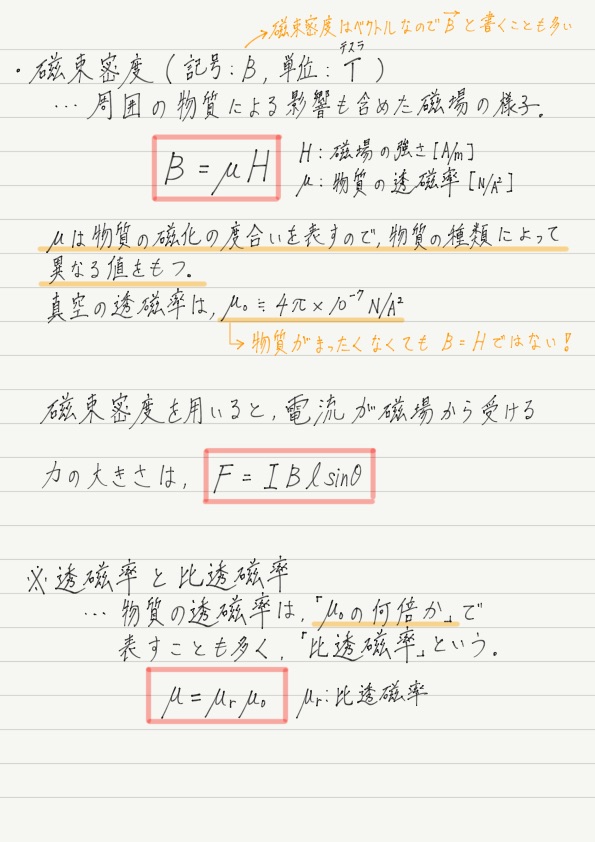 磁束密度はベクトルなのでB⃗と書くことも多い
テスラ
・磁束密度(記号:B, 単位:T)
… 周囲の物質による影響も含めた磁場の様子。
B = μH
H:磁場の強さ[A/m]
μ:物質の透磁率[N/A²]
μは物質の磁化の度合いを表すので, 物質の種類によって
異なる値をもつ。
真空の透磁率は, μ₀ ≒ 4π×10⁻⁷ N/A²
物質がまったくなくても B=H ではない!
磁束密度を用いると, 電流が磁場から受ける
力の大きさは, F = IBl sinθ
※透磁率と比透磁率
… 物質の透磁率は,『μ₀の何倍か』で
表すことも多く,『比透磁率』という。
μ = μᵣμ₀ μᵣ:比透磁率